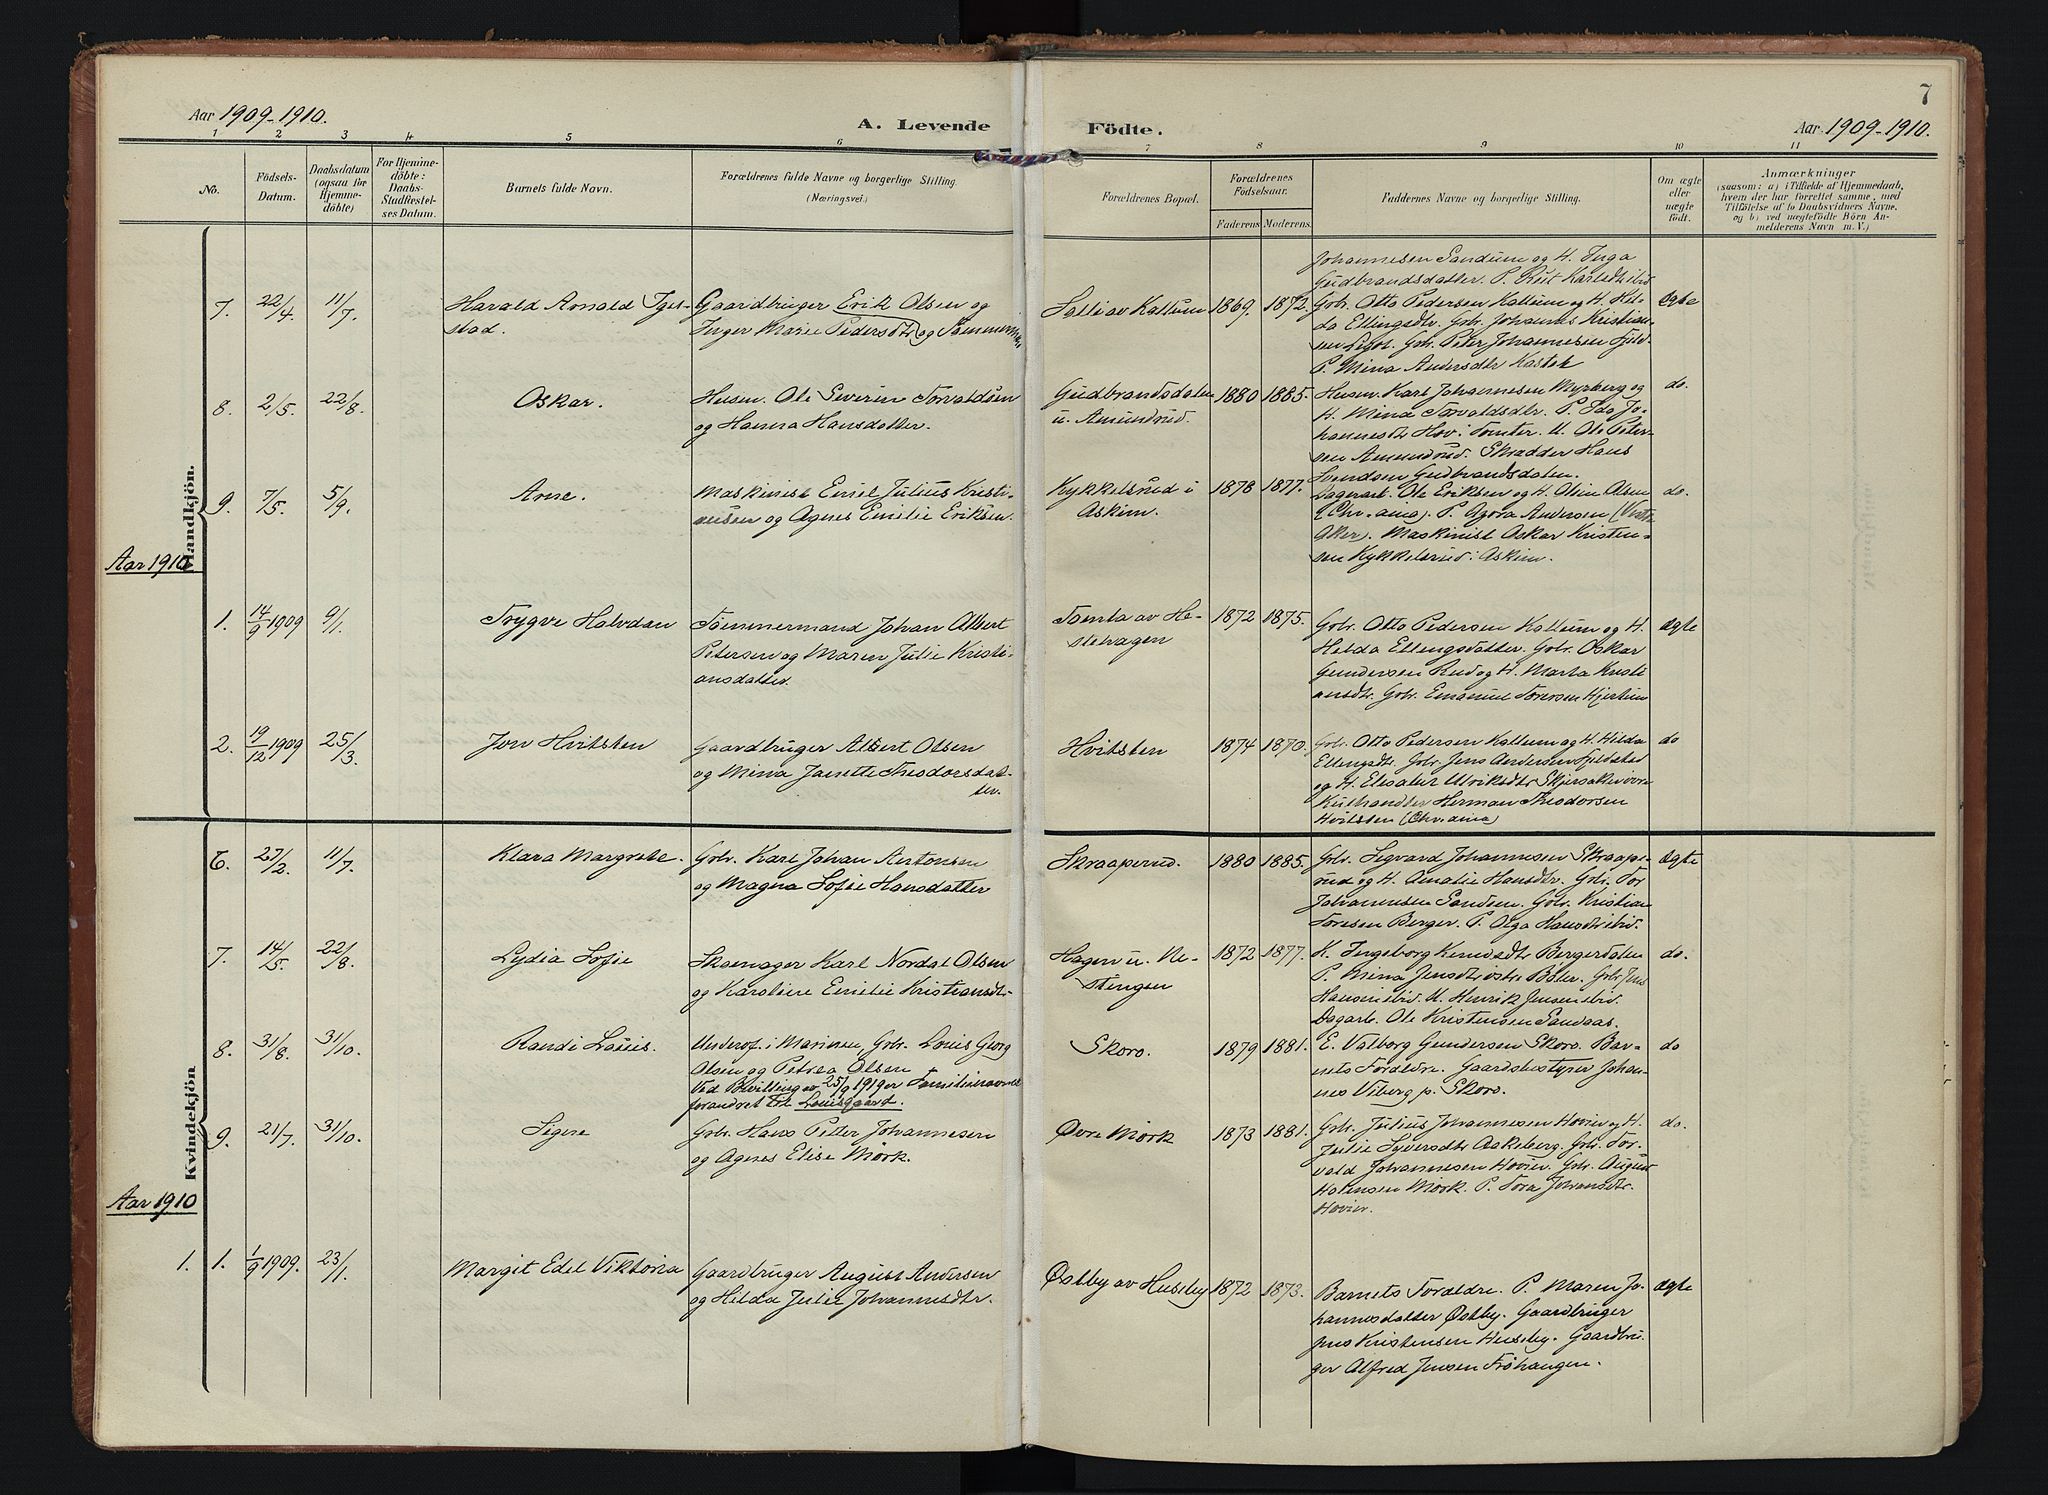 7
Aar 1909-1910.
A. Levende Födte.
Aar 1909-1910.
1 2 3 4 5 6 7 8 9 10 11
No.
Födsels-
Datum.
Daabsdatum
(ogsaa for
Hjemme-
döbte)
For Hjemme-
döbte:
Daabs-
Stadfæstel-
ses Datum.
Barnets fulde Navn.
Forældrenes fulde Navne og borgerlige Stilling.
(Næringsvei.)
Forældrenes Bopæl.
Forældrenes
Födselsaar.
Faderens Moderens.
Faddernes Navne og borgerlige Stilling.
Om ægte
eller
uægte
født.
Anmærkninger
(saasom: a) i Tilfælde af Hjemmedaab,
hvem der har forrettet samme, med
Tilföielse af to Daabsvidners Navne.
og b) ved uægtefödte Börn An-
melderens Navn m. V.)
Mandkjön.
Johannesen Sandum og H. Inga
Gudbrandsdatter. P.
7. 22/4 11/7
Harald Arnold Iges-
stad.
Gaardbruger Erik Olsen og
Inger Marie Pedersdtr. og Tømmerm.
av Kallum 1869. 1872.
Gbr. Otto Pedersen Kallum og H. Hil-
da Ellingsdtr. Gbr. Johannes Kristian-
sen Gbr. Peter Johannesen
P. Mina Andersdtr
Ægte
8. 2/5. 22/8.
Oskar.
Husm. Ole Severin Torvaldsen
og Hanna Hansdatter.
Gudbrandsdalen
u. Amundrud.
1880 1885.
Husm. Karl Johannesen Myrberg og
H. Mina Torvaldsdtr. P. Ida Jo-
hannesdtr Hov i Tomter. U. Ole Peter-
sen Amundrud. Skrædder Hans
Svendsen Gudbrandsdalen.
do.
9. 7/5. 5/9.
Arne.
Maskinist Emil Julius Kristi-
ansen og Agnes Emilie Eriksen.
Kykkelsrud i
Askim.
1878 1877.
Dagarb. Ole Eriksen og H. Oline Olsen
(Chr.ania). P. Agora Andersen (Vestr.
Aker). Maskinist Oskar Kristen-
sen Kykkelsrud i Askim.
do.
Aar 1910
1. 14/9 1909 9/1.
Trygve Halvdan
Tømmermand Johan Albert
Petersen og Maren Julie Kristi-
ansdatter.
Tomta av He-
stehagen
1872 1875.
Gbr. Otto Pedersen Kallum og H.
Hilda Ellingsdatter. Gbr. Oskar
Gundersen Rud og H. Marta Kristi
ansdtr. Gbr. Emanuel Toresen Hjertum
Ægte
2. 19/12 1909 25/3.
Jon Hvitsten
Gaardbruger Albert Olsen
og Mina Janette Theodorsdat-
ter.
Hvitsten
1874 1870.
Gbr. Otto Pedersen Kallum og H. Hilda
Ellingsdtr. Gbr. Jens Andersen Fjeldstad
og H. Elisabet Ulriksdtr
Herman Theodorsen
Hvitsten (Chr.ania)
do
Kvindekjön
6. 27/2. 11/7.
Klara Margrete.
Gbr. Karl Johan Antonsen
og Magna Sofie Hansdatter
Skraaperud.
1880 1885.
Gbr. Segvard Johannesen Skraape-
rud og H. Amalie Hansdtr. Gbr. Tor
Johannesen Sandum. Gbr. Kristian
Toresen Berger. P. Olga Hansdtr ibid.
Ægte
7. 14/5. 22/8.
Lydia Sofie
Skomager Karl Nordal Olsen
og Karoline Emilie Kristiansdt.
Hagen u. Ne-
stengen
1872 1877.
K. Ingeborg Knudsdtr Bergerdalen
P. Mina Jensdtr østre Bøler. Gbr. Jens
Hansen ibid. U. Henrik Jensen ibid.
Dagarb. Ole Kristensen Sandaas.
do.
8. 31/8. 31/10.
Randi Louis.
Underof. i Marinen, Gbr. Louis Georg
Olsen og Petrea Olsen
Ved Bevilling av 25/9 1919 er Familienavnet
forandret til Louisgaard.
Skoro.
1879 1881.
E. Valborg Gundersen Skoro. Bar-
nets Forældre. Gaardsbestyrer Johan-
nes Viberg p. Skoro.
do
9. 21/7. 31/10.
Signe
Gbr. Hans Petter Johannesen
og Agnes Elise Mørk.
Øvre Mørk
1873 1881.
Gbr. Julius Johannesen Hovier og H.
Julie Syversdtr Aakeberg. Gbr. Tor-
vald Johannesen Hovier. Gbr. August
Mørk. P. Tora Johansdtr.
Hovier.
do.
Aar 1910
1. 1. 1/9 1909. 23/1.
Margit Edel Viktoria
Gaardbruger August Andersen
og Hilda Julie Johannesdtr.
Østby av Huseby
1872 1873.
Barnets Forældre. P. Maren Jo-
hannesdatter Østby. Gaardbruger
Jens Kristensen Huseby. Gaardbru-
ger Alfred Jensen Frøhaugen.
Ægte